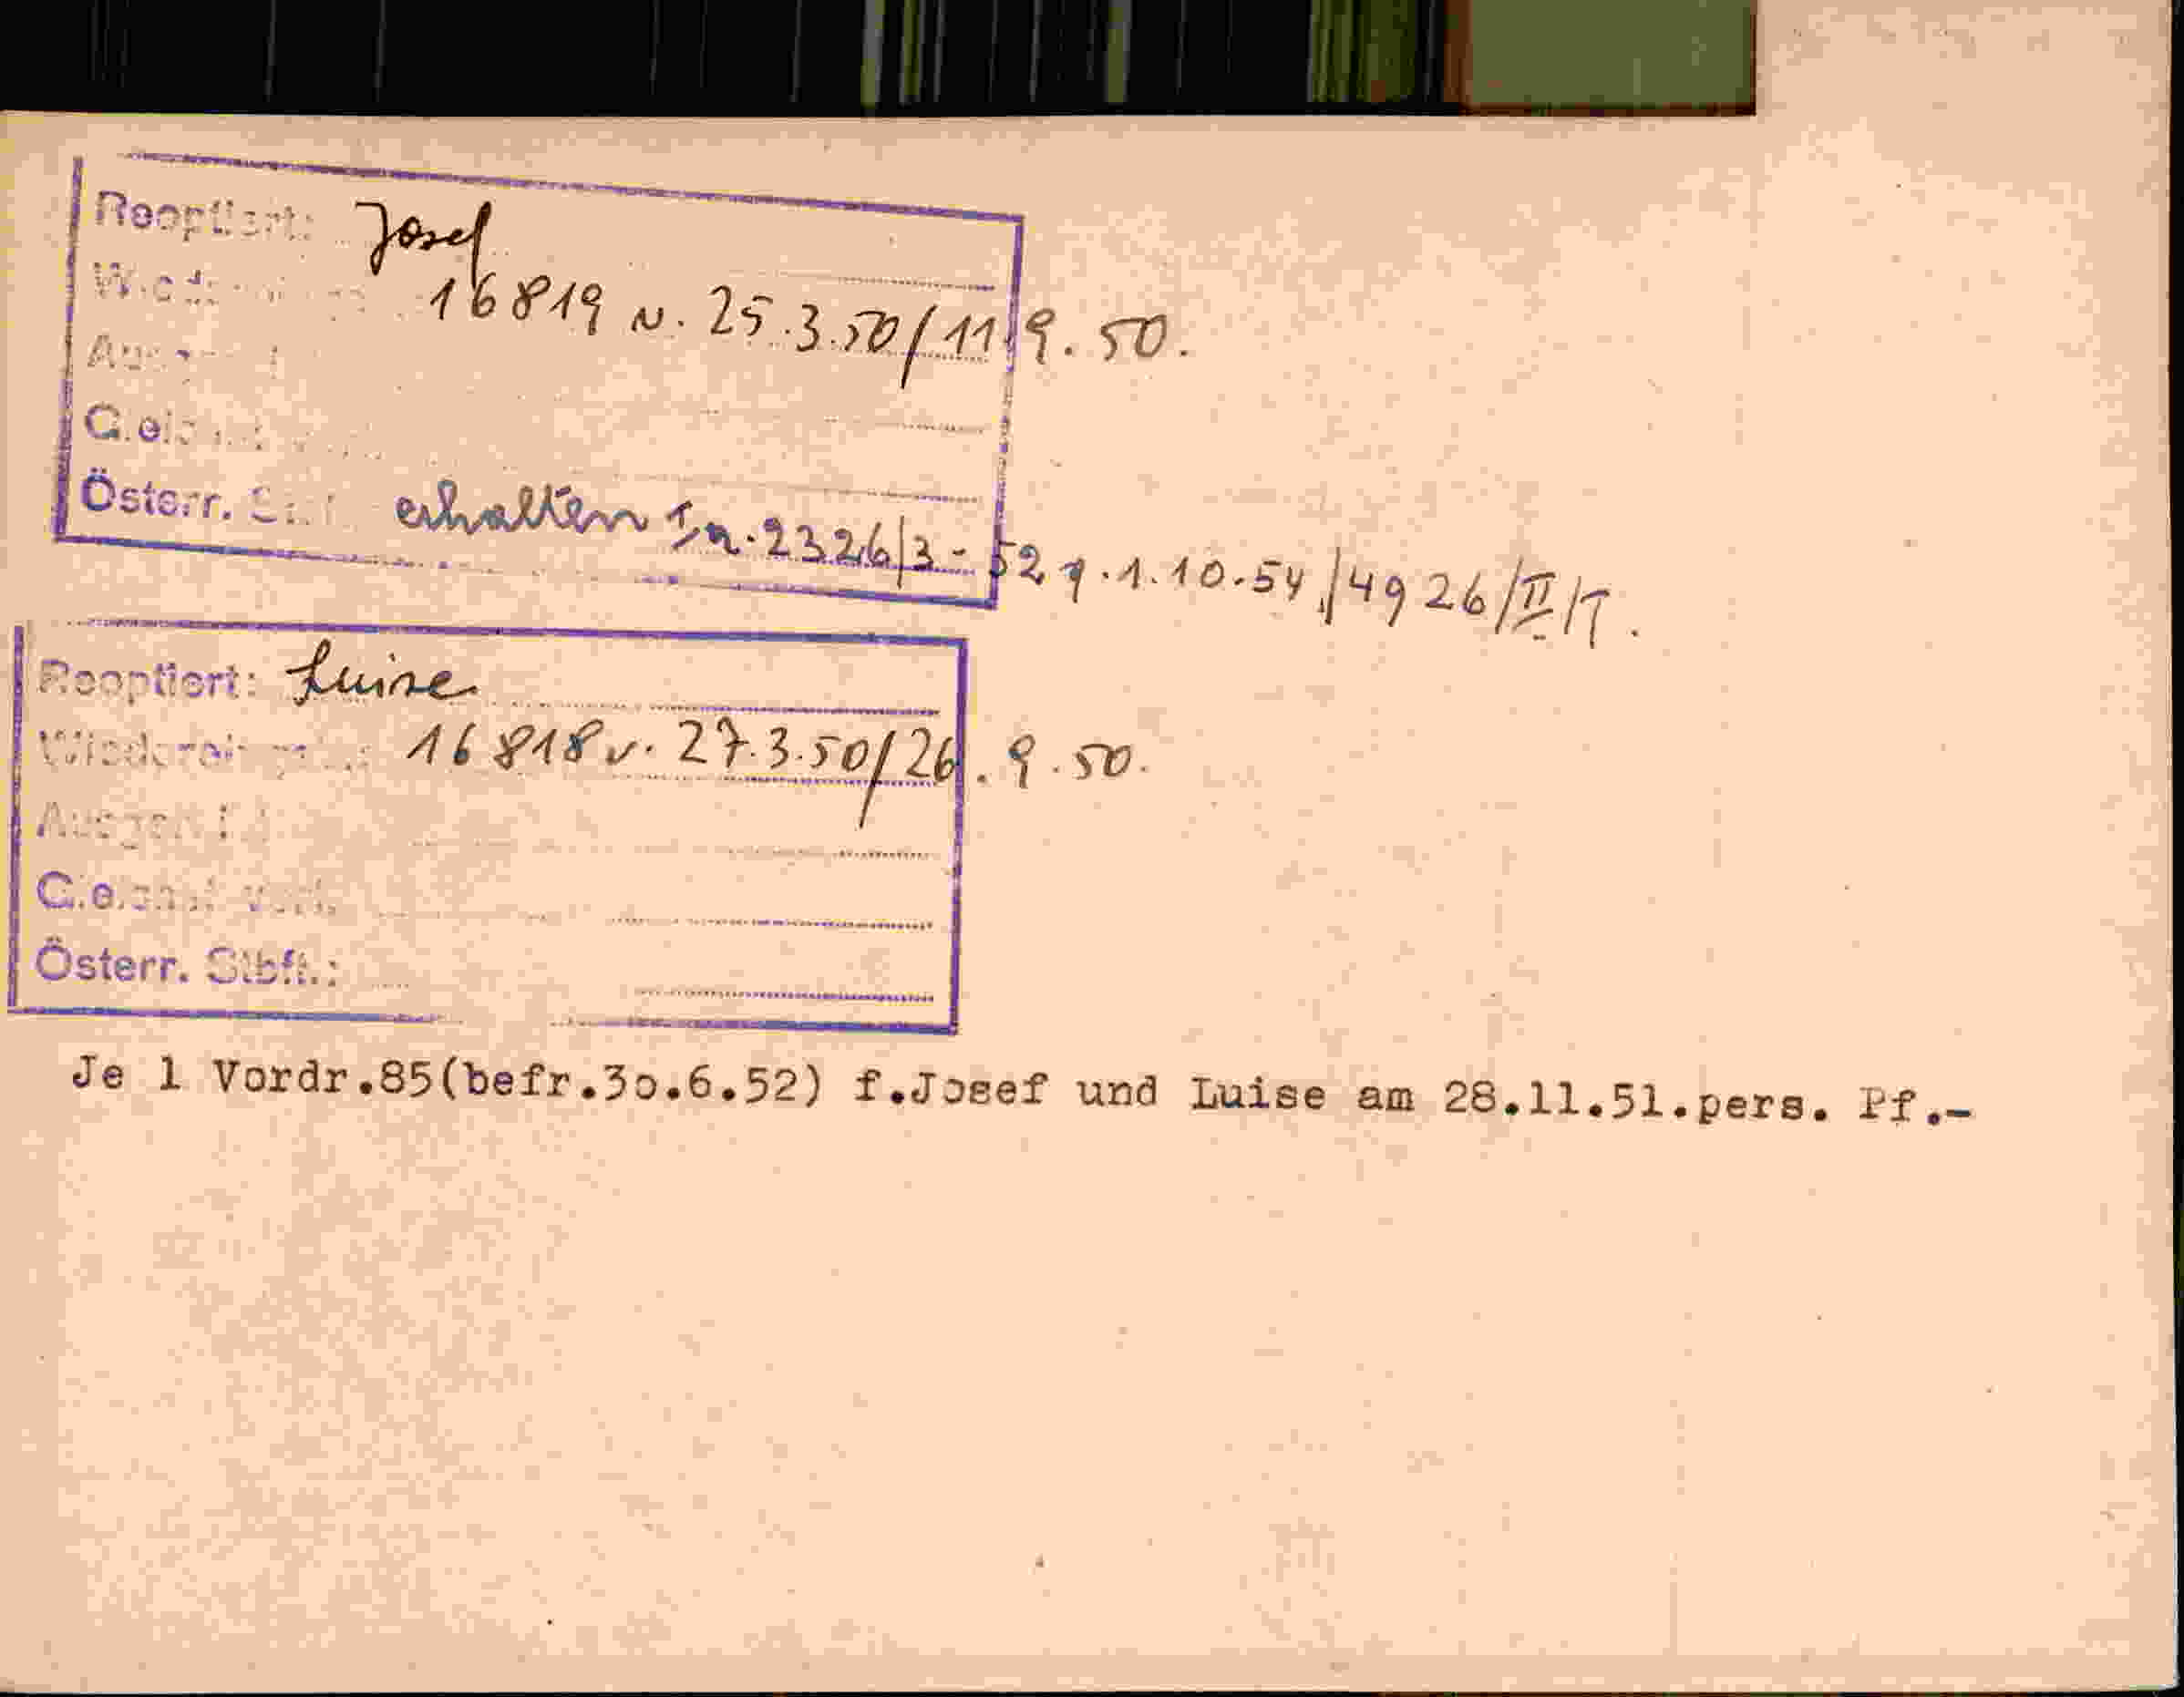 Reoptiert: Josef
16819 v. 25.3.50/11.9.50.
Österr. erhalten Ia-2326/3-52 v. 1.10.54/4926/II/T.
Reoptiert: Luise
16818 v. 27.3.50/26.9.50.
Österr. Stbft.:
Je 1 Vordr.85(befr.3o.6.52) f.Josef und Luise am 28.11.51.pers. Pf.-